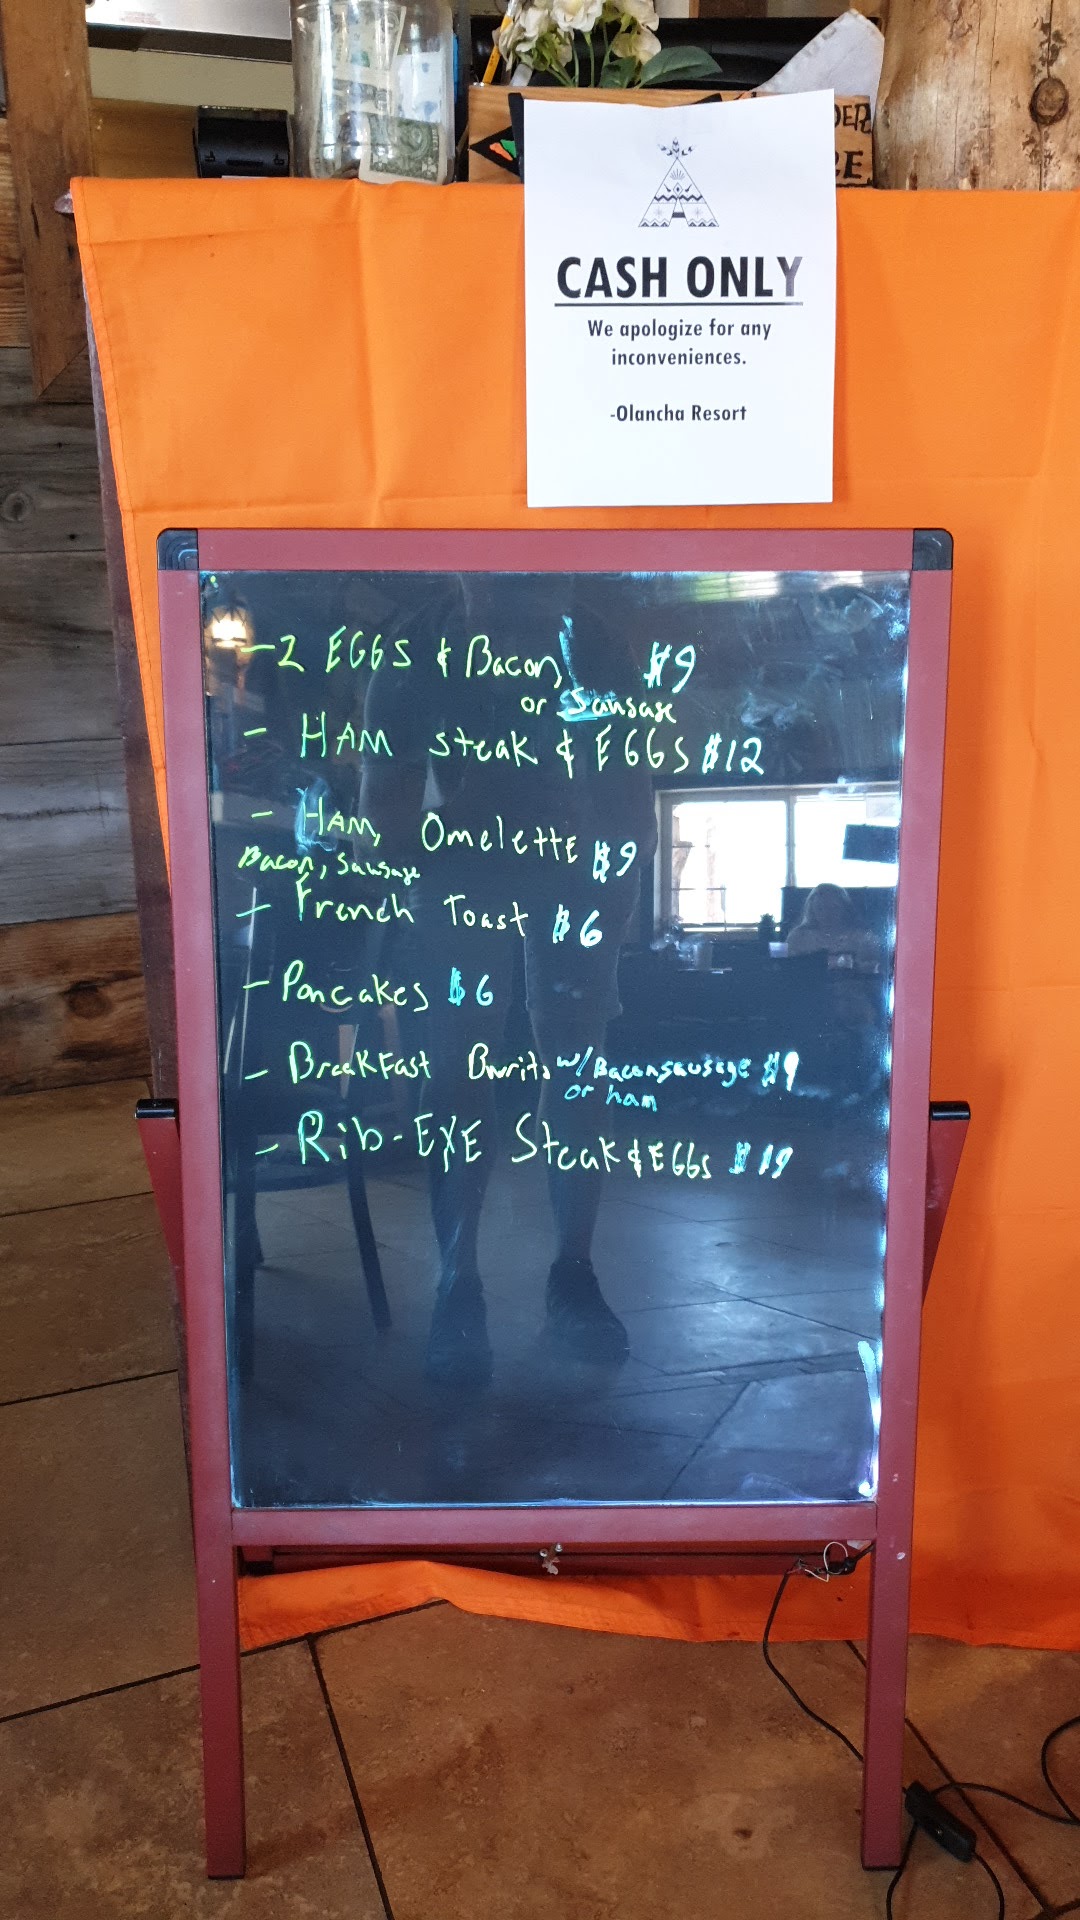 DER
RE
CASH ONLY
We apologize for any
inconveniences.
-Olancha Resort
-2 EGGS & Bacon, $9
or Sausage
- HAM steak & EGGS $12
- HAM, Omelette $9
Bacon, Sausage
- French Toast $6
- Pancakes $6
- BreakFast Burrito w/Bacon sausage $9
or ham
- Rib-EYE Steak & EGGs $19